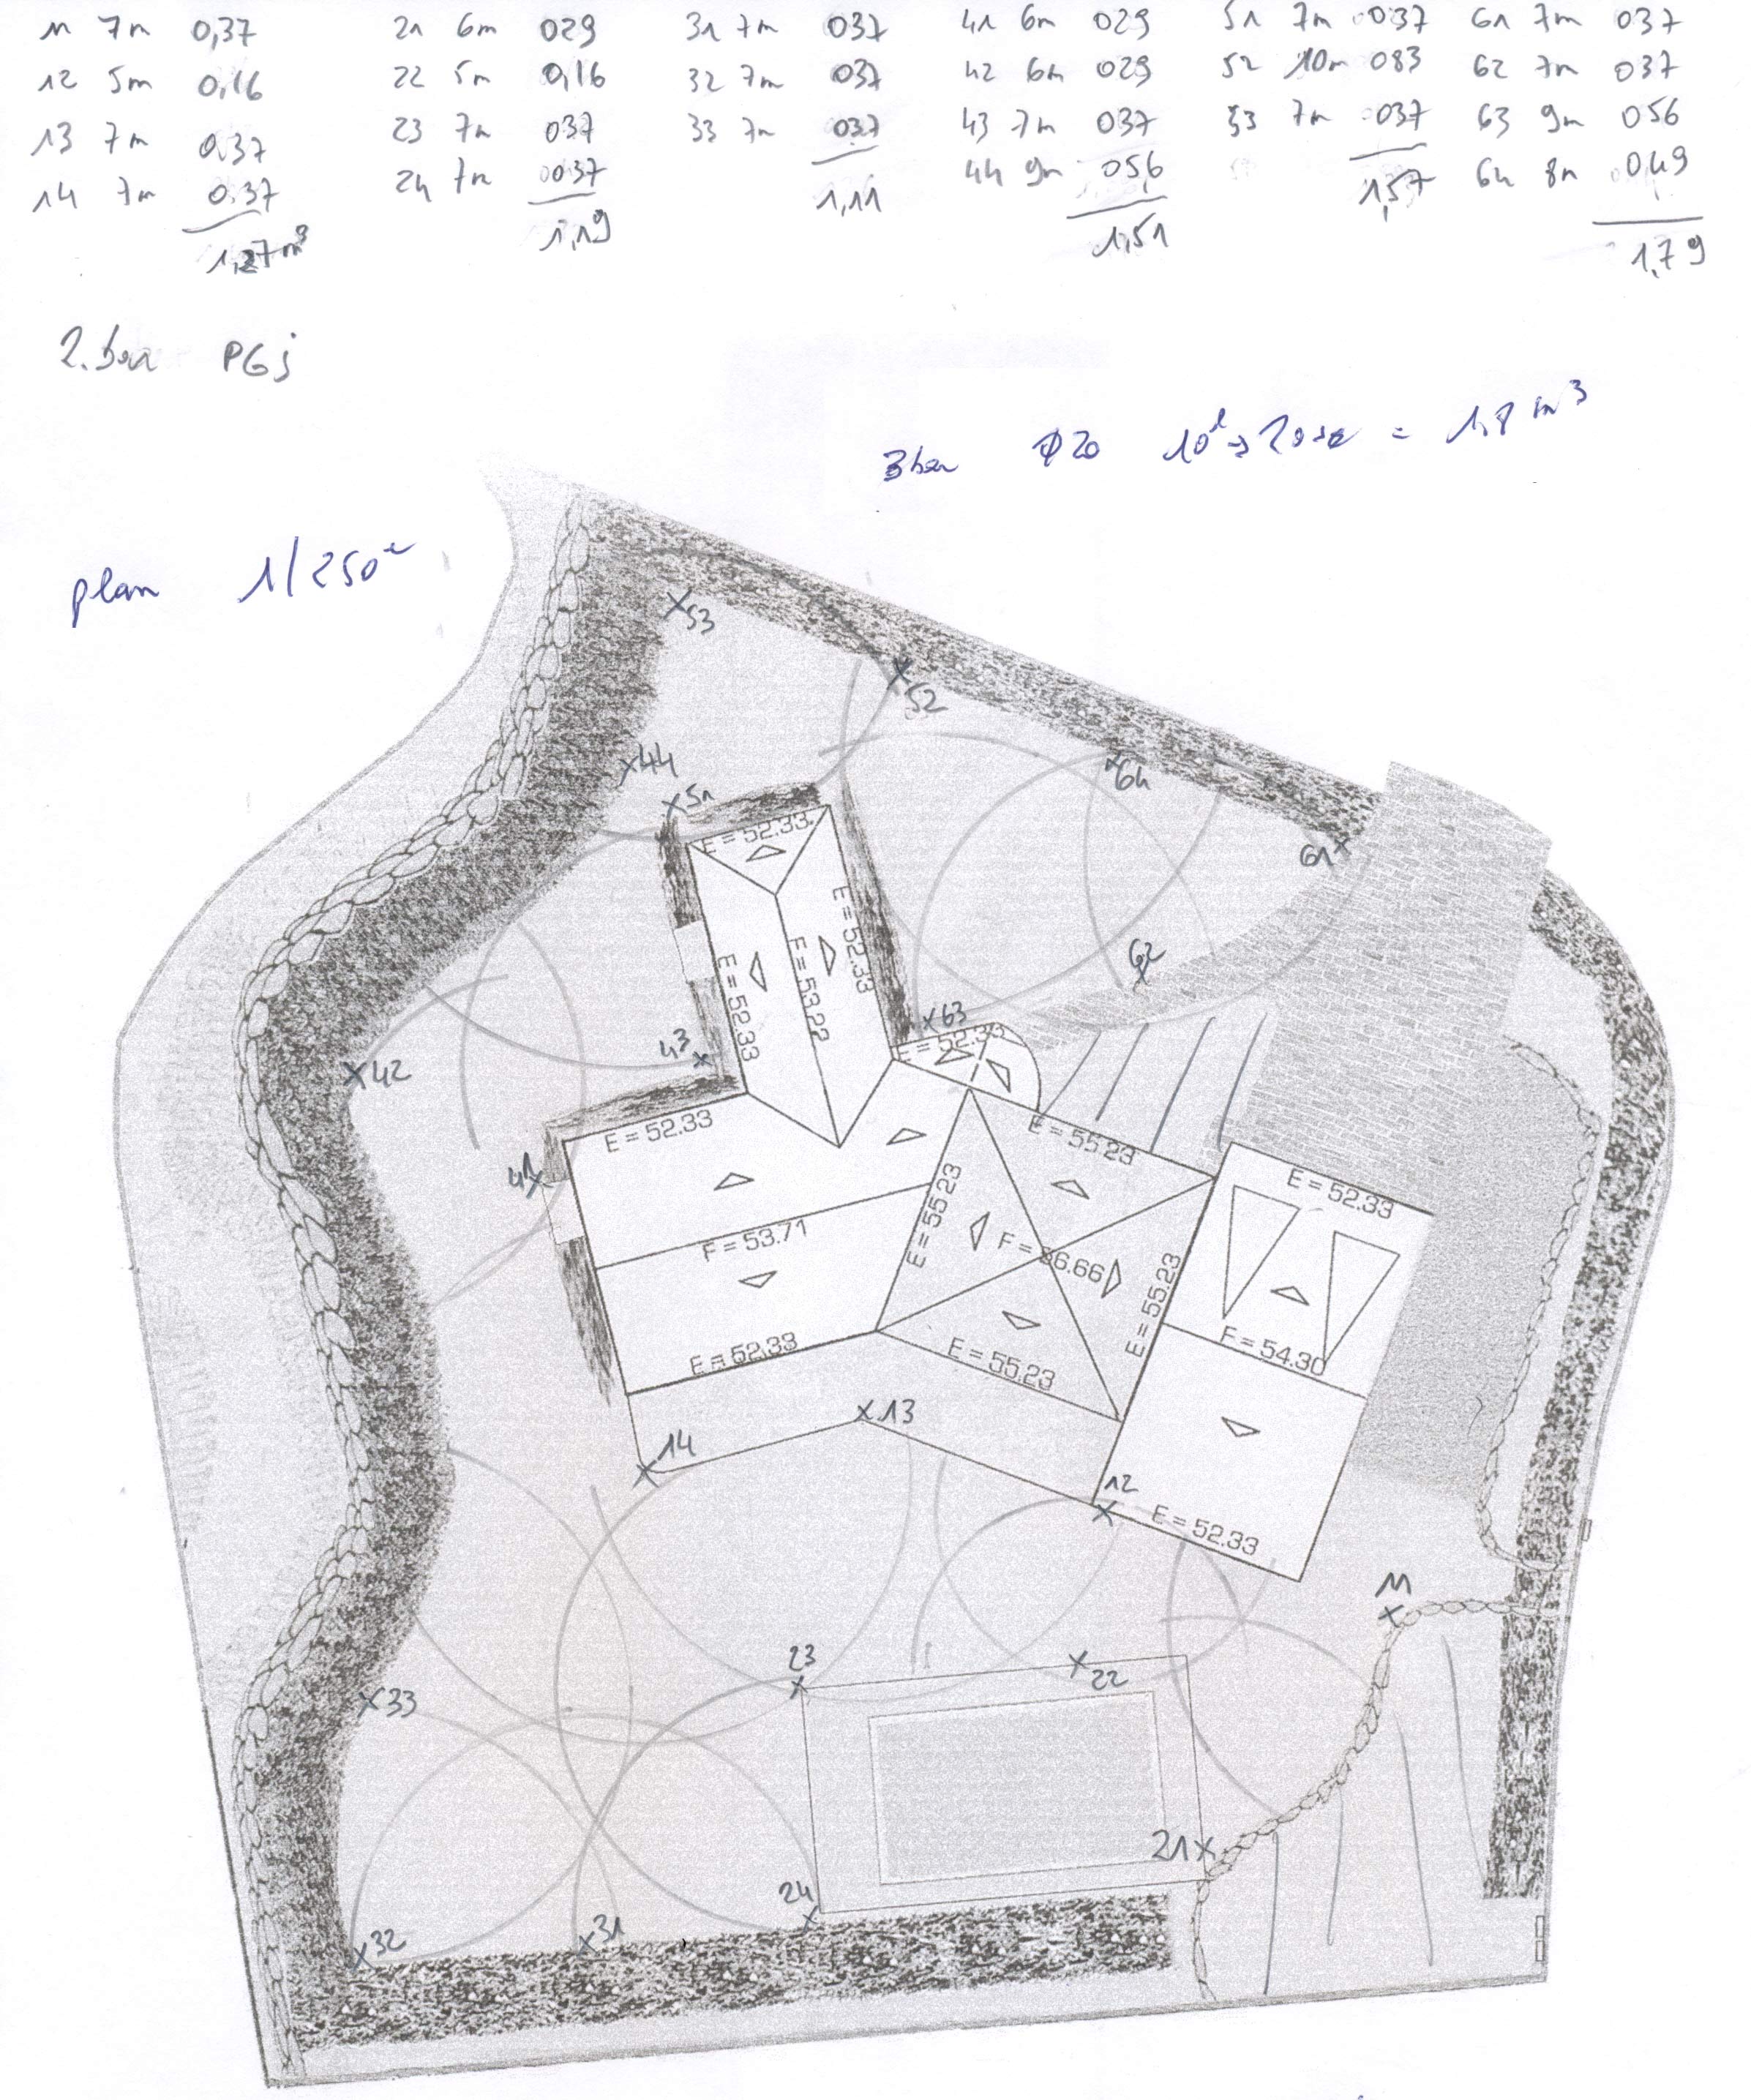 11 7m 0,37 21 6m 029 31 7m 037 41 6m 029 51 7m 037 61 7m 037
12 5m 0,16 22 5m 0,16 32 7m 037 42 6m 029 52 10m 083 62 7m 037
13 7m 0,37 23 7m 037 33 7m 037 43 7m 037 53 7m 037 63 9m 056
14 7m 0,37 24 7m 037 1,11 44 9m 056 1,57 64 8m 049
1,27m³ 1,19 1,51 1,79
2.bar PGj
3bar Φ20 = 1,8 m³
plan 1/250e
53
52
44
64
51
E = 52.33
61
E = 52.33
F = 53.22
E = 52.33
62
63
43
E = 52.33
42
E = 52.33
E = 55.23
41
E = 55.23
E = 52.33
F = 53.71
F = 56.66
E = 55.23
E = 52.33
E = 55.23
F = 54.30
13
14
12
E = 52.33
11
23
22
33
21
24
32
31